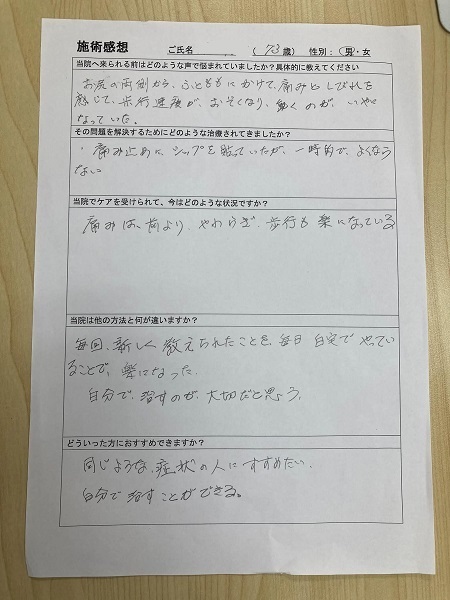 施術感想 ご氏名 (73歳) 性別：男・女
当院へ来られる前はどのような声で悩まれていましたか？具体的に教えてください
お尻の両側から、ふとももにかけて、痛みとしびれを
感じて、歩行速度が、おそくなり、動くのが、いやに
なっていた。
その問題を解決するためにどのような治療されてきましたか？
・痛み止めに、シップを貼っていたが、一時的で、よくなら
ない
当院でケアを受けられて、今はどのような状況ですか？
痛みは、前より、やわらぎ、歩行も楽になっている
当院は他の方法と何が違いますか？
毎回、新しく教えられたことを、毎日自宅でやってい
ることで、楽になった。
自分で、治すのが、大切だと思う。
どういった方におすすめできますか？
同じような、症状の人にすすめたい。
自分で治すことができる。